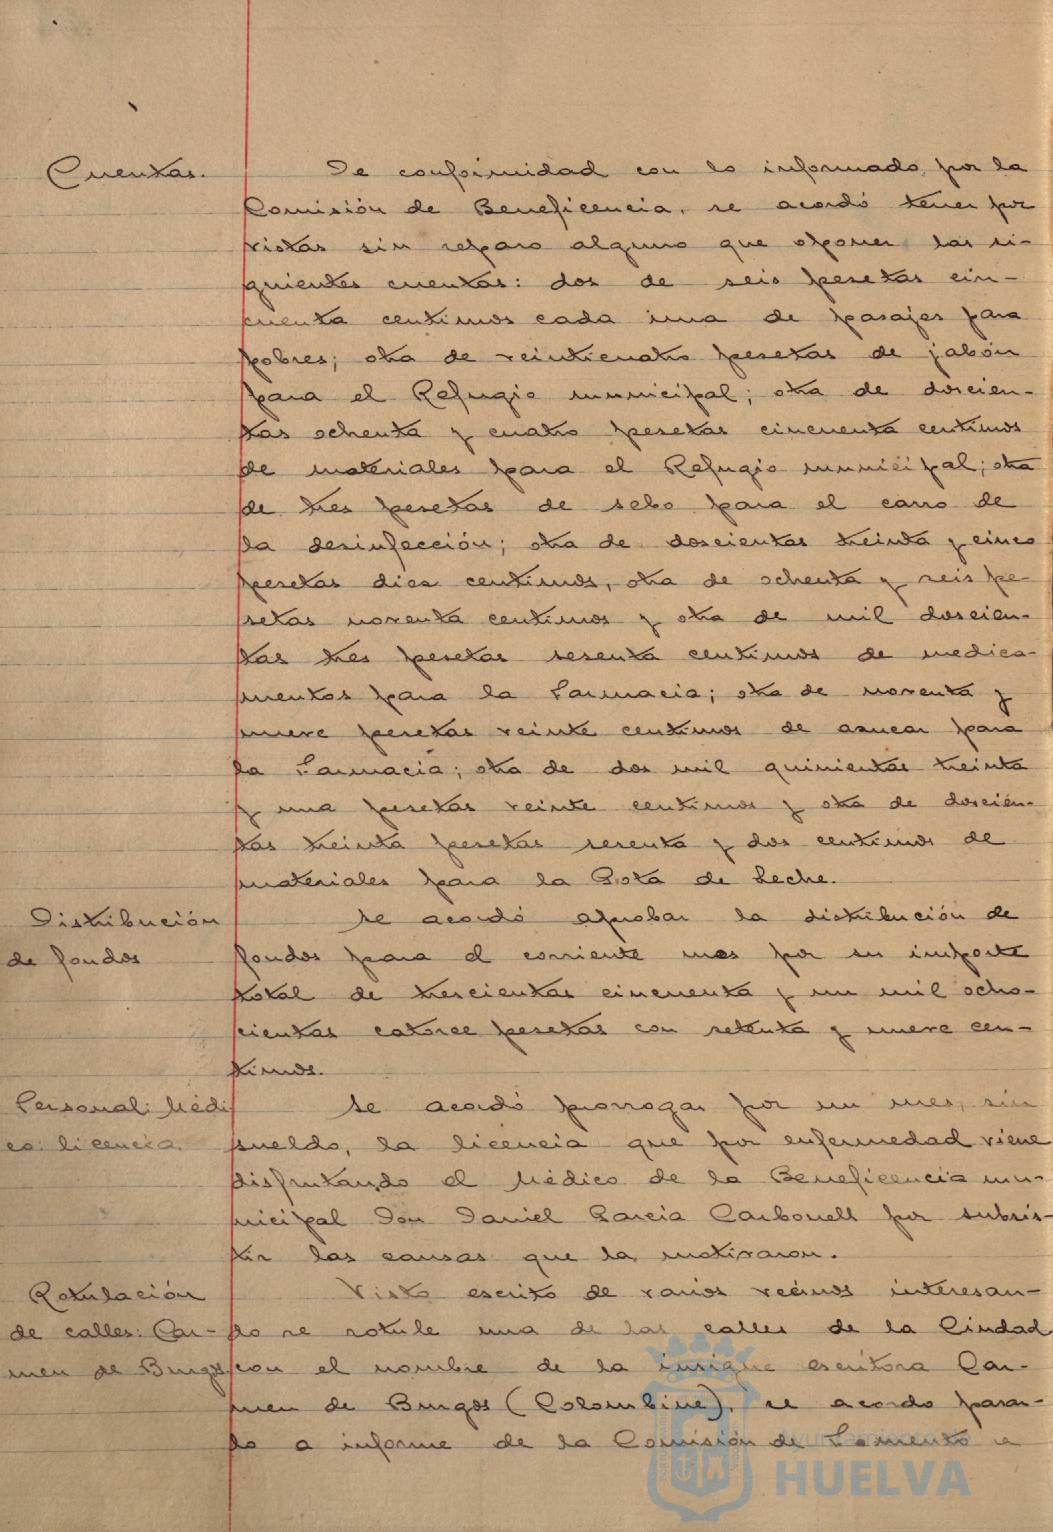 Cuentas.
De conformidad con lo informado por la
Comisión de Beneficencia, se acordó tener por
vistas sin reparo alguno que oponer las si-
guientes cuentas: dos de seis pesetas cin-
cuenta centimos cada una de pasajes para
pobres; otra de veinticuatro pesetas de jabón
para el Refugio municipal; otra de doscien-
tas ochenta y cuatro pesetas cincuenta centimos
de materiales para el Refugio municipal; otra
de tres pesetas de sebo para el carro de
la desinfección; otra de doscientas treinta y cinco
pesetas diez centimos, otra de ochenta y seis pe-
setas noventa centimos y otra de mil doscien-
tas tres pesetas sesenta centimos de medica-
mentos para la Farmacia; otra de noventa y
nueve pesetas veinte centimos de azucar para
la Farmacia; otra de dos mil quinientas treinta
y una pesetas veinte centimos y otra de doscien-
tas treinta pesetas sesenta y dos centimos de
materiales para la Gota de Leche.
Distribución
de fondos
Se acordó aprobar la distribución de
fondos para el corriente mes por su importe
total de trescientas cincuenta y un mil ocho-
cientas catorce pesetas con setenta y nueve cen-
timos.
Personal: Médi
co: licencia
Se acordó prorrogar por un mes, sin
sueldo, la licencia que por enfermedad viene
disfrutando el Médico de la Beneficencia mu-
nicipal Don Daniel Garcia Carbonell por subsis-
tir las causas que la motivaron.
Rotulación
de calles: Car-
men de Burgos
Visto escrito de varios vecinos interesan-
do se rotule una de las calles de la Ciudad
con el nombre de la insigne escritora Car-
men de Burgos (Colombine), se acordo pasar-
lo a informe de la Comisión de Fomento e
Ayuntamiento de
HUELVA